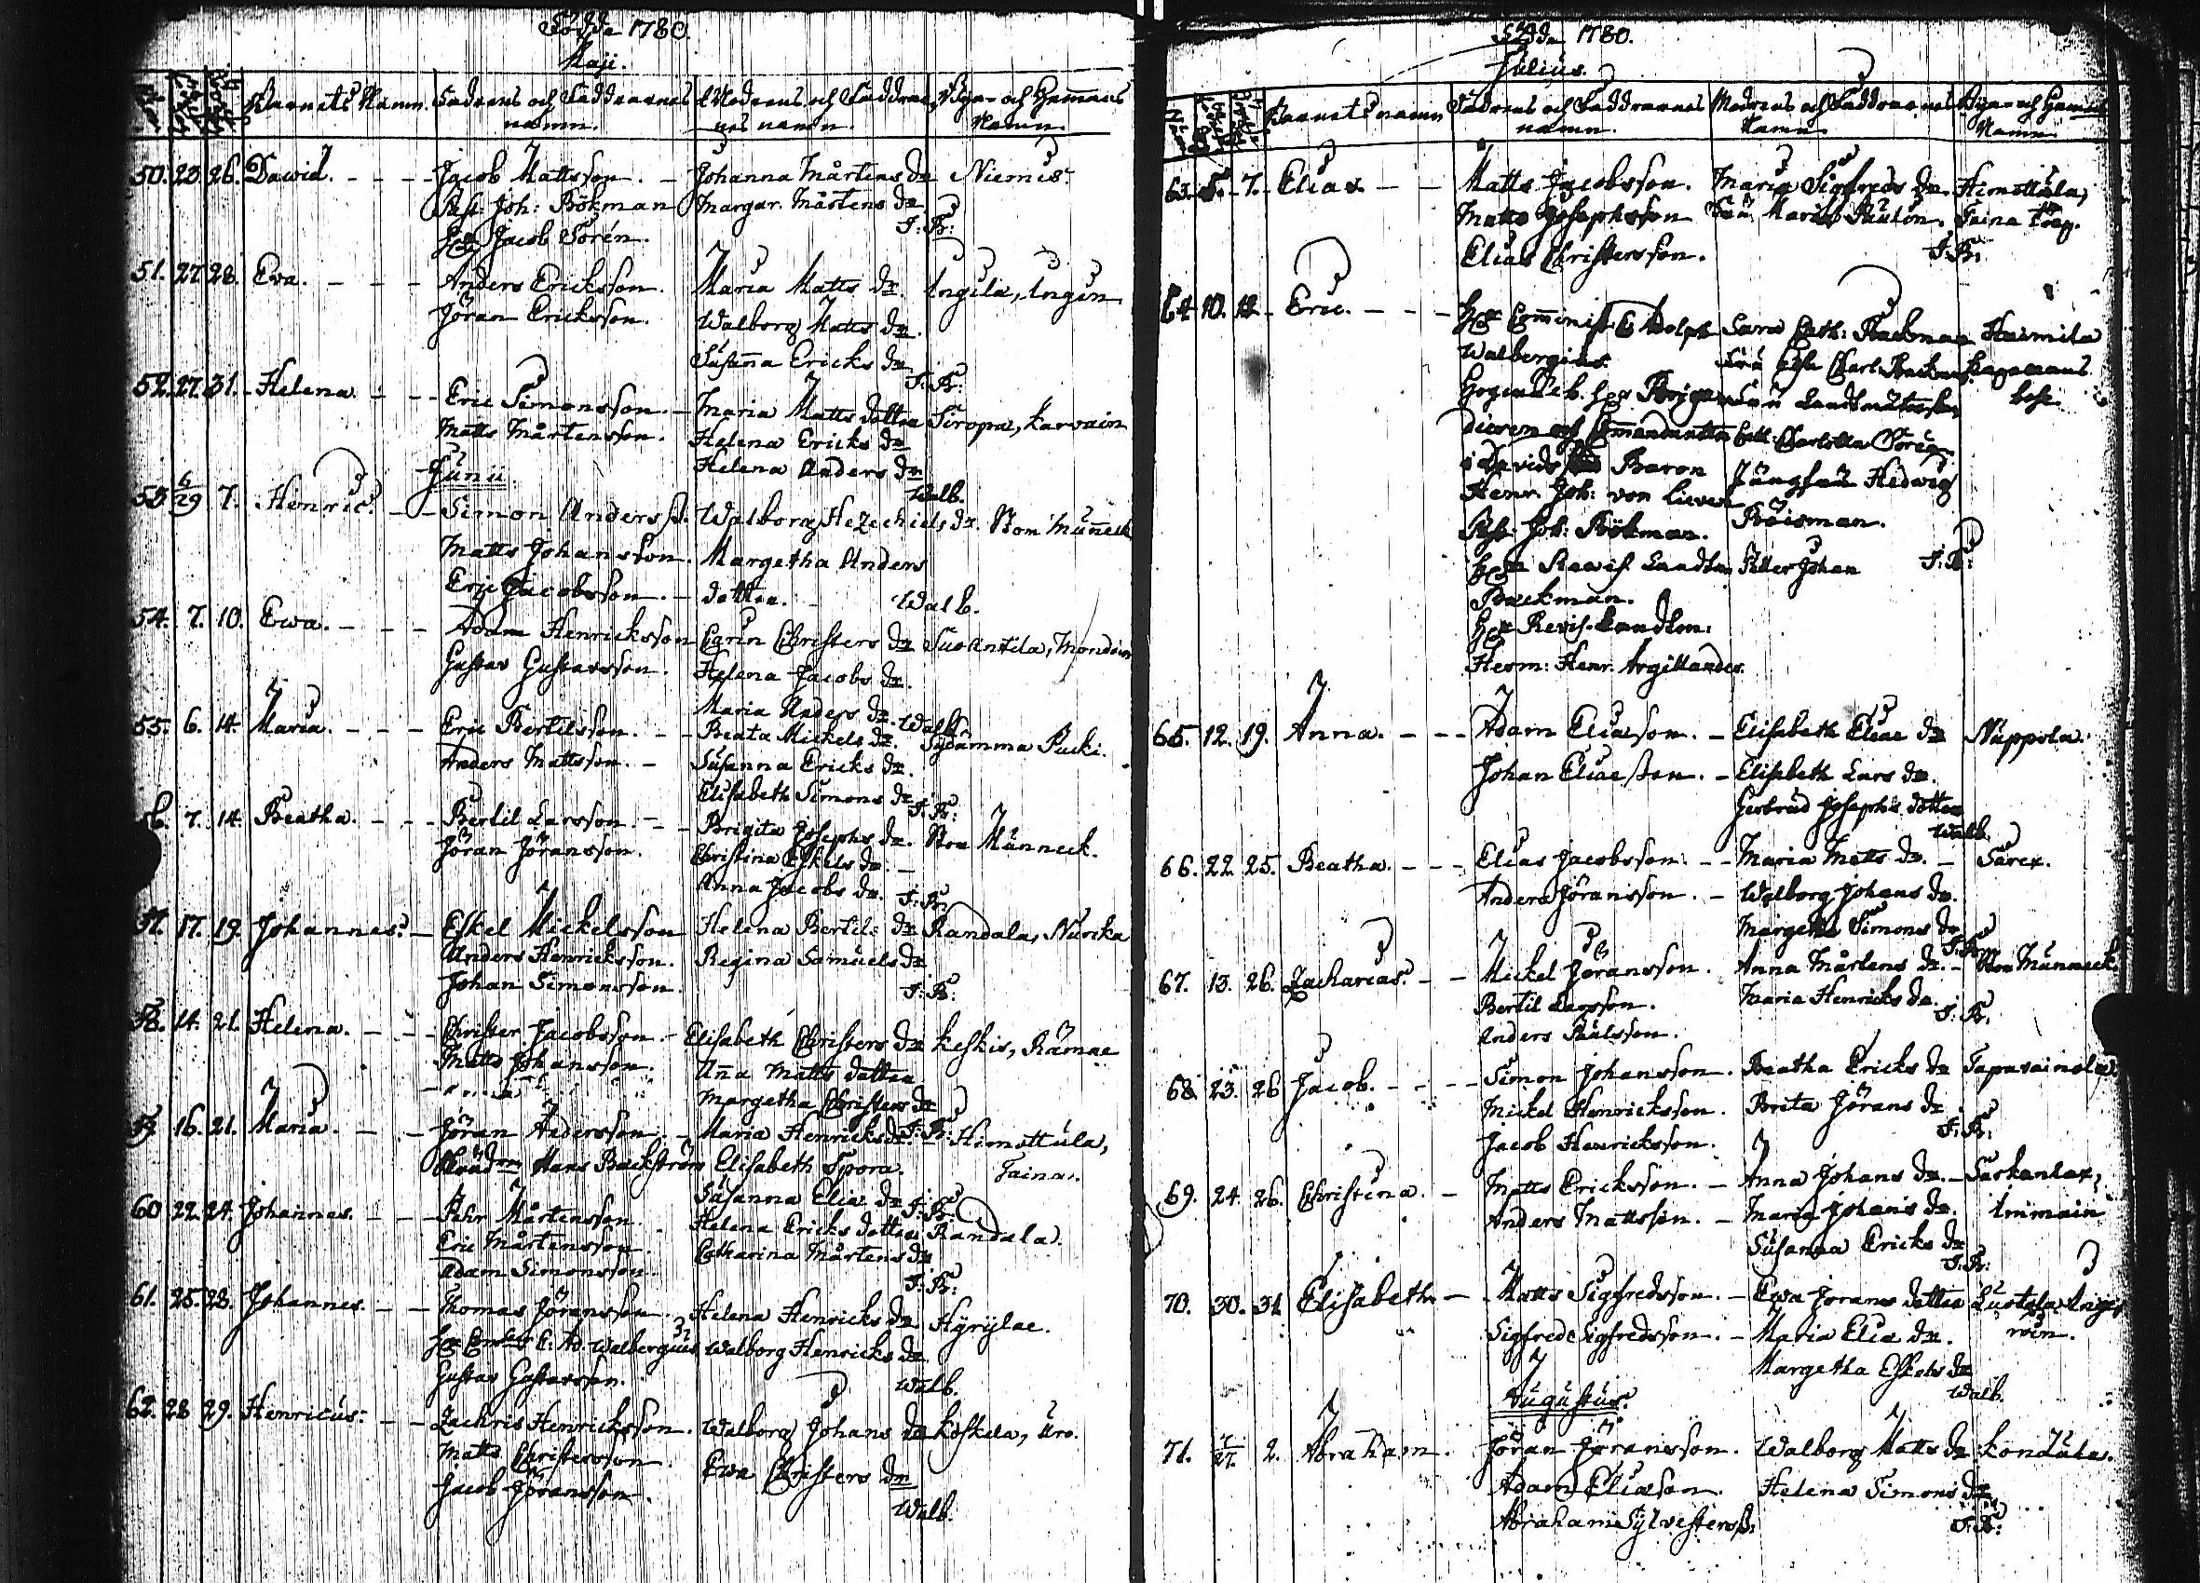 Födde 1780.
Maji.
Barnets Namn. Fadrens och Faddrarnes Modrens och Faddrar- Bya- och Hemmans
namn. nes namn. Namn.
50. 23 26. David. - - - Jacob Mattsson. - Johanna Mårtens dr Niemis.
Past: Joh: Bökman Margar. Mårtens dr
Hr Jacob Forén. J: B:
51. 27 28. Eva. - - - Anders Ericksson. Maria Matts dr. Ingila, Ingin
Jöran Ericksson. Walborg Matts dr.
Susanna Ericks dr
J: B:
52. 27. 31. Helena. - - Eric Simonsson. - Maria Matts dotter Siropa, Karvain
Matts Mårtensson. Helena Ericks dr
Helena Anders dr
Walb.
Junii.
53 6/29 7. Henric. - - Simon Anderss. Walborg Hezechiels dr. Stor Münneck
Matts Johansson. Margetha Anders
Eric Jacobsson. - dotter. - Walb.
54. 7. 10. Ewa. - - - Adam Henricksson Carin Christers dr Suolntila, Mondoin
Gustav Gustavsson. Helena Jacobs dr.
Maria Anders dr. Walb.
55. 6. 14. Maria. - - - Eric Bertilsson. - - Beata Mickels dr. Sydämma Pucki.
Anders Mattsson. - Susanna Ericks dr.
Elisabeth Simons dr
J: B:
56. 7. 14. Beatha. - - - Bertil Larsson. - - Brigita Josephs dr. Stor Männeck.
Jöran Jöransson. Christina Eskels dr. -
Anna Jacobs dr. J: B:
57. 17. 19. Johannes. - Eskel Mickelsson Helena Bertils dr Randala, Nurcka
Anders Henricksson. Regina Samuels dr
Johan Simonsson. J: B:
58. 14. 21. Helena. - - - Christer Jacobsson. - Elisabeth Christers dr Keskis, Rämae
Matts Johansson. Anna Matts dotter
Margetha Christers dr
J: B:
59 16. 21. Maria. - - - Jöran Andersson. - Maria Henricks dr Himottula,
Hans Backström Elisabeth Spora. Taina.
Susanna Elia dr J: B:
60 22. 24. Johannes. - - Pehr Mårtensson. Helena Ericks dotter Randala.
Eric Mårtensson. Catharina Mårtens dr
Adam Simonsson. J: B:
61. 25. 28. Johannes. - - Thomas Jöransson. Helena Henricks dr Hyrylae.
Hr E: Ad. Walbergius, Walborg Henricks dr
Gustav Gustavsson. Walb.
62. 28 29. Henricus. - - Zachris Henricksson. Walborg Johans dr Koskela, Uro.
Matts Christersson. Ewa Christers dr
Jacob Jöransson. Walb.
Födde 1780.
Julius.
Barnets namn Fadrens och Faddrarnes Modrens och Faddrarnes Bya- och Hemans
namn. Namn. Namn.
63. 5. 7. Elias. - - Matts Jacobsson. Maria Sigfreds dr. Himottula,
Matts Josephsson Fru Maria Paulin. Taina
Elias Christersson. J: B:
64 10. 12. Eric. - - - Hr Comminist. E Adolph Sara Cath: Backman Haimila
Walbergius. Fru Backman Kapellans
Högwelb. Hr Brigan- Fru Landtmäterskan bost.
dieren och Commendanten Cath: Charlotta
i Davids Baron Jungfru Hedwig
Henr. Joh: von Lieven Böisman.
Past: Joh: Bökman.
Hr Revis. Landtm. Petter Johan J: B:
Backman.
Hr Revis. Landtm:
Herm: Henr. Argillander.
65. 12. 19. Anna. - - - Adam Eliasson. - Elisabeth Eliae dr Nuppola.
Johan Eliasson. - Elisabeth Lars dr.
Gertrud Josephs dotter
Walb.
66. 22 25. Beatha. - - - Elias Jacobsson. - - Maria Matts dr. - Särex.
Anders Jöransson. - Walborg Johans dr.
Margetha Simons dr
J: B:
67. 13. 26. Zacharias. - - Mickel Jöransson. Anna Mårtens dr. - Stor Münneck.
Bertil Larsson. Maria Henricks dr.
Anders Pålsson. J: B:
68. 23. 26 Jacob. - - - - Simon Johansson. Beatha Ericks dr Tapavainola
Mickel Henricksson. Brita Jörans dr
Jacob Henricksson. J: B:
69. 24. 26. Christina. - Matts Ericksson. - Anna Johans dr. - Sarkanlax,
Anders Mattsson. - Maria Johans dr. Immain
Susanna Ericks dr
J: B:
70. 30. 31 Elisabeth - Matts Sigfredsson. - Ewa Jörans dotter
Sigfred Sigfredsson. - Maria Elia dr.
Margetha Eskels dr
Walb.
Augustus.
71. 2. Abraham. Jöran Jöransson. Walborg Matts dr Kondula.
Adam Eliasson. Helena Simons dr
Abraham Sylvesterss: J: B: